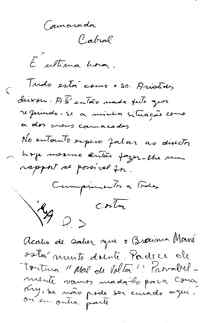 Camarada
Cabral
É última hora.
Tudo está como o so Aristides
deixou. Até então nada feito que
regarde-se a minha situação como
a dos meus camaradas
No entanto espero falar ao director
hoje mesmo então fazer-lhe um
rapport se possível for.
Cumprimentos a todos
Costa
P.S
Acabo de saber que o Braima Mané
está muito doente. Padece de
tortura "Mal de
mente vamos mandá-lo para Cona
kry, se não pode ser curado aqui
ou em outra parte